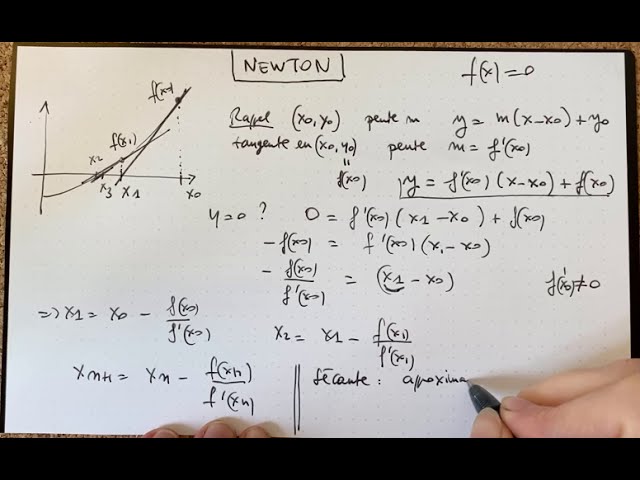 NEWTON
f(x)=0
1
f(x0)
f(x1)
x2
x3 x1 x0
Rappel (x0,y0) pente m y = m(x-x0)+y0
tangente en (x0,y0) pente m = f'(x0)
=
f(x0)
y = f'(x0)(x-x0)+f(x0)
y=0 ? 0 = f'(x0)(x1-x0)+f(x0)
-f(x0) = f'(x0)(x1-x0)
- f(x0)/f'(x0) = (x1-x0) f'(x0)≠0
=> x1 = x0 - f(x0)/f'(x0)
x2 = x1 - f(x1)/f'(x1)
xn+1 = xn - f(xn)/f'(xn)
Sécante : approxima